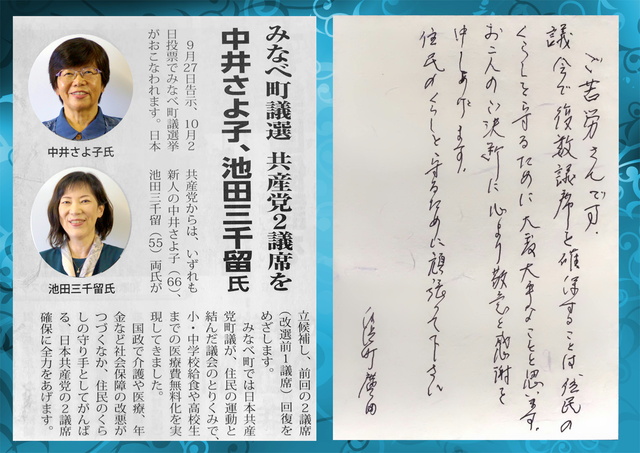 みなべ町議選 共産党2議席を
中井さよ子、池田三千留氏
9月27日告示、10月2
日投票でみなべ町議選挙
がおこなわれます。日本
共産党からは、いずれも
新人の中井さよ子（66）、
池田三千留（55）両氏が
中井さよ子氏
池田三千留氏
立候補し、前回の2議席
（改選前1議席）回復を
めざします。
みなべ町では日本共産
党町議が、住民の運動と
結んだ議会のとりくみで、
小・中学校給食や高校生
までの医療費無料化を実
現してきました。
国政で介護や医療、年
金など社会保障の改悪が
つづくなか、住民のくら
しの守り手としてがんば
る、日本共産党の2議席
確保に全力をあげます。
ご苦労さんです。
議会で複数議席を確保することは住民の
くらしを守るために大変大事なことと思います。
お二人のご決断に心より敬意と感謝を
申しあげます。
住民のくらしを守るために頑張って下さい